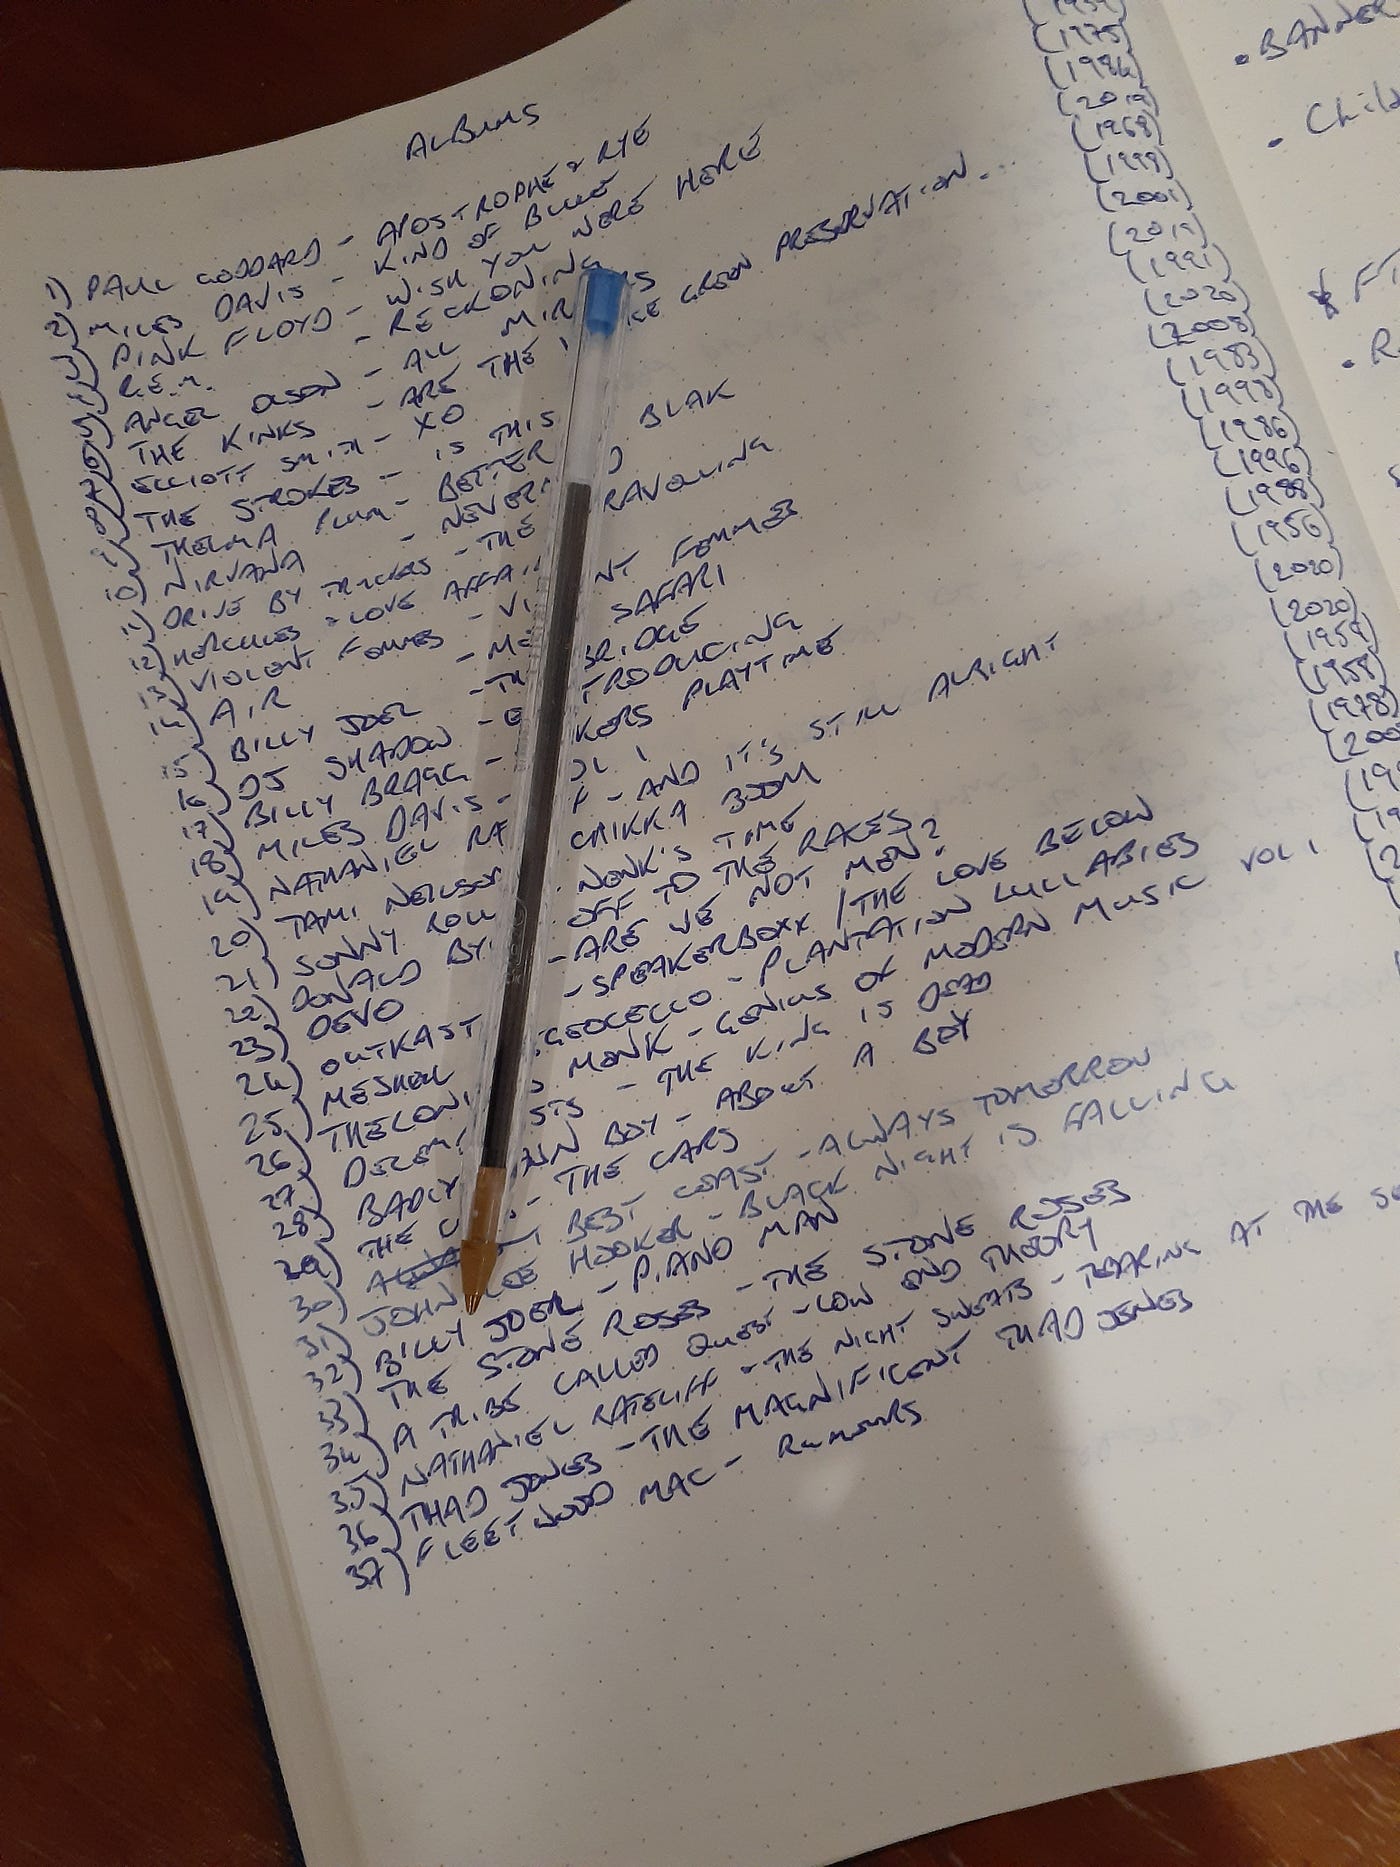 ALBUMS
1) PAUL GODDARD - APOSTROPHE & RYE
2) MILES DAVIS - KIND OF BLUE (1959)
3) PINK FLOYD - WISH YOU WERE HERE (1975)
4) R.E.M. - RECKONING (1984)
5) ANGEL OLSEN - ALL MIR S (2019)
6) THE KINKS - ARE THE GREEN PRESERVATION... (1968)
7) ELLIOTT SMITH - XO (1998)
8) THE STROKES - IS THIS (2001)
9) THELMA PLUM - BETTER BLAK (2019)
10) NIRVANA - NEVER D (1991)
11) DRIVE BY TRUCKERS - THE RAVELLING (2020)
12) HERCULES & LOVE AFFAI (2008)
13) VIOLENT FEMMES - VI NT FEMMES (1983)
14) AIR - M SAFARI (1998)
15) BILLY JOEL - TH BRIDGE (1986)
16) DJ SHADOW - E TRODUCING (1996)
17) BILLY BRAGG - KERS PLAYTIME (1988)
18) MILES DAVIS - OL 1 (1956)
19) NATHANIEL RA F - AND IT'S STILL ALRIGHT (2020)
20) TAMI NEILSON CHIKKA BOOM (2020)
21) SONNY ROLL - NONK'S TIME (1959)
22) DONALD BY OFF TO THE RACES (1958)
23) DEVO - ARE WE NOT MEN? (1978)
24) OUTKAST - SPEAKERBOXX / THE LOVE BELOW (200
25) MESHELL GEOCELLO - PLANTATION LULLABIES (19
26) THELONI S MONK - GENIUS OF MODERN MUSIC VOL 1 (19
27) DECEM STS - THE KING IS DEAD (2
28) BADLY WN BOY - ABOUT A BOY
29) THE C - THE CARS
30) BEST COAST - ALWAYS TOMORROW
31) JOHN LEE HOOKER - BLACK NIGHT IS FALLING
32) BILLY JOEL - PIANO MAN
33) THE STONE ROSES - THE STONE ROSES
34) A TRIBE CALLED QUEST - LOW END THEORY
35) NATHANIEL RATELIFF - THE NIGHT SWEATS - TEARING AT THE SE
36) THAD JONES - THE MAGNIFICENT THAD JONES
37) FLEETWOOD MAC - RUMOURS
• BANNER
• Child